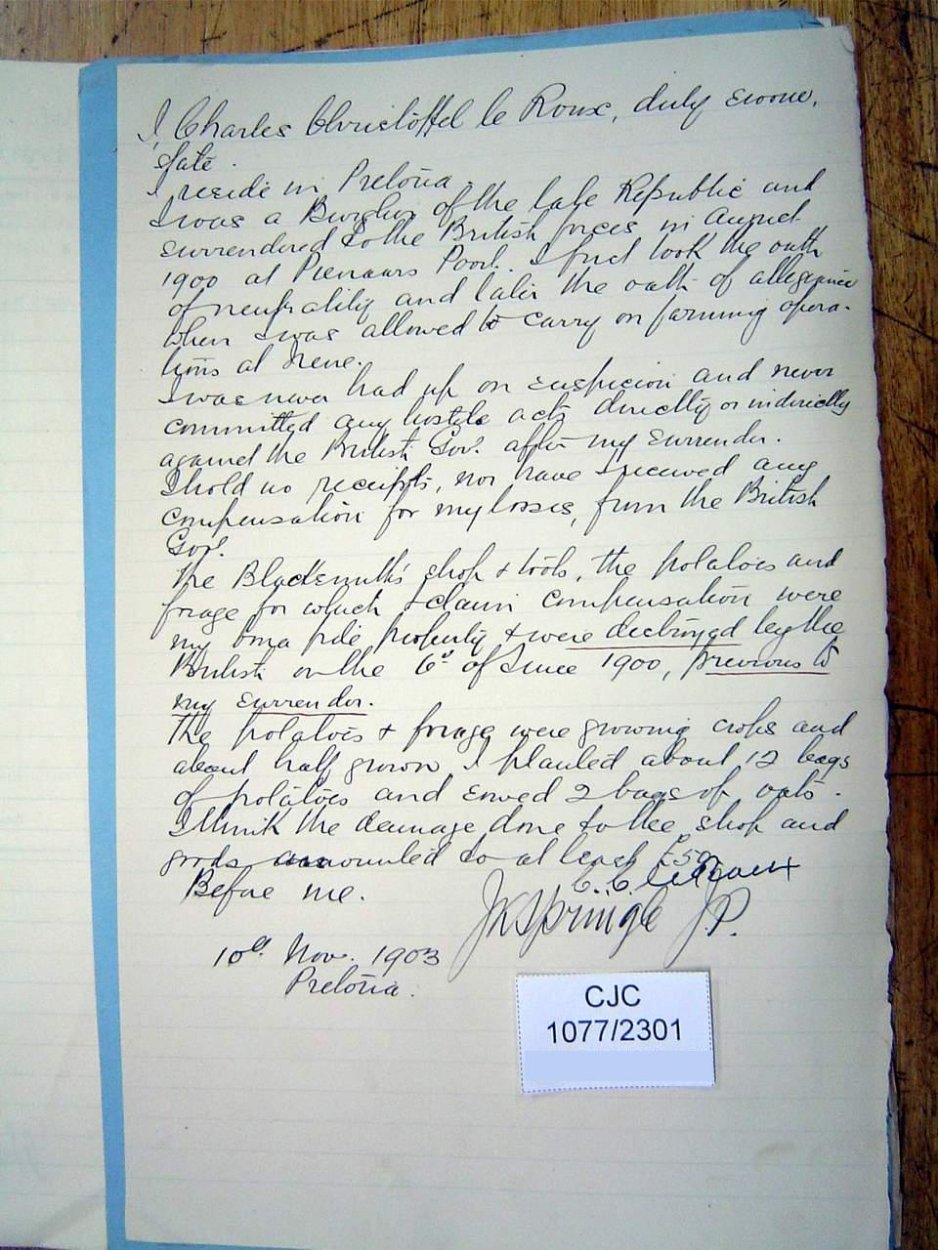 I, Charles Christoffel le Roux, duly sworn,
state.
I reside in Pretoria.
I was a Burgher of the late Republic and
surrendered to the British forces in August
1900 at Pienaars Poort. I first took the oath
of neutrality and later the oath of allegiance
when I was allowed to carry on farming opera-
tions at Irene.
I was never had up on suspicion and never
committed any hostile acts directly or indirectly
against the British Gov! after my surrender.
I hold no receipts, nor have I received any
compensation for my losses, from the British
Gov!.
The Blacksmith's shop & tools, the potatoes and
forage for which I claim compensation were
my bona fide property & were destroyed by the
British on the 6th of June 1900, previous to
my surrender.
The potatoes & forage were growing crops and
about half grown I planted about 12 bags
of potatoes and sowed 2 bags of oats.
I think the damage done to the shop and
goods amounted to at least £50
C. C. le Roux
Before me.
J K Springle J.P.
10th Nov. 1903
Pretoria.
CJC
1077/2301